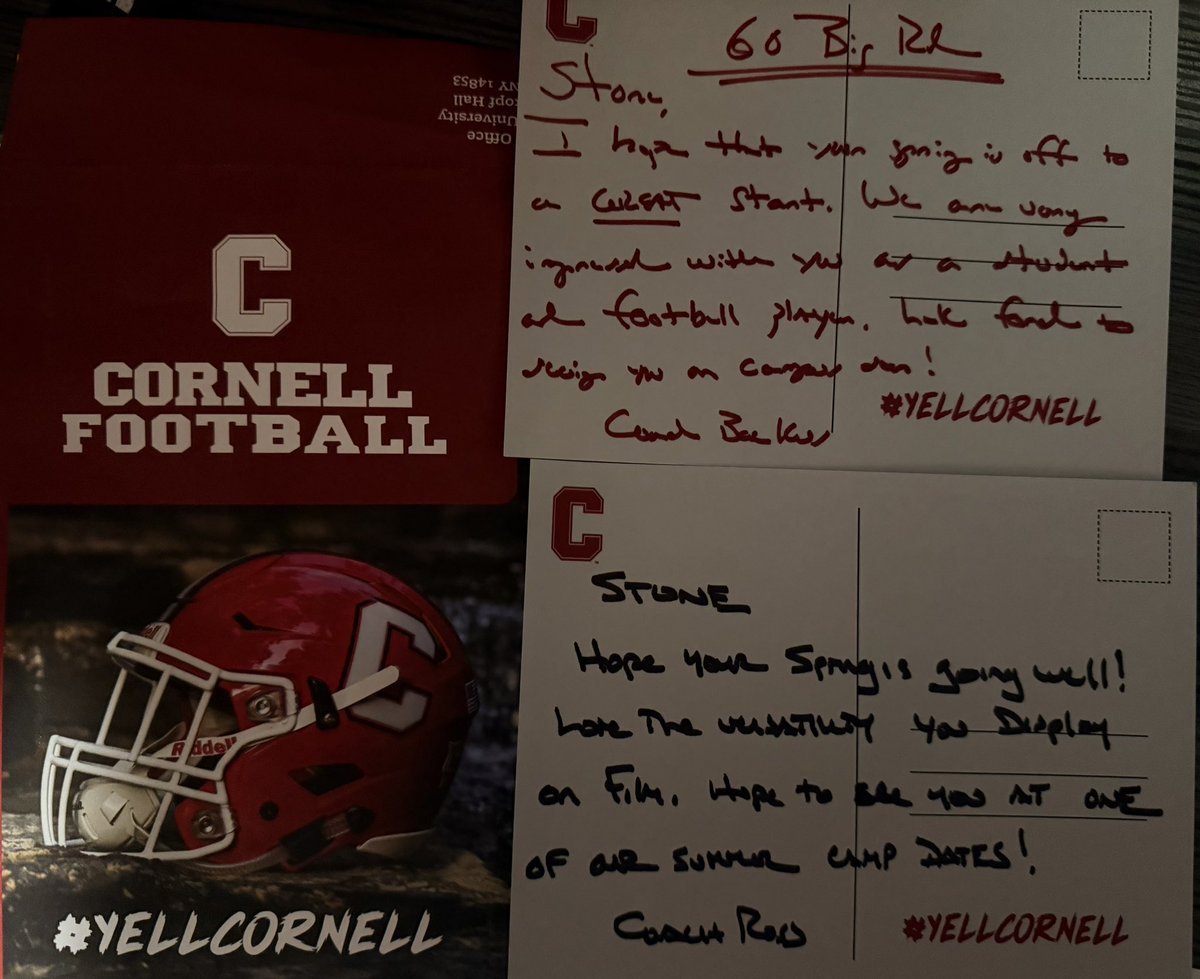 Office
University
opf Hall
NY 14853
C
CORNELL
FOOTBALL
C
Riddell
#YELLCORNELL
C
GO Big Red
Stone,
I hope that your spring is off to
a GREAT start. We are very
impressed with you as a student
and football player. Look forward to
seeing you on campus soon!
Coach Backus
#YELLCORNELL
C
STONE
Hope your Spring is going well!
Love The versatility you Display
on Film. Hope to see you AT ONE
OF our summer CAMP DATES!
COACH
#YELLCORNELL